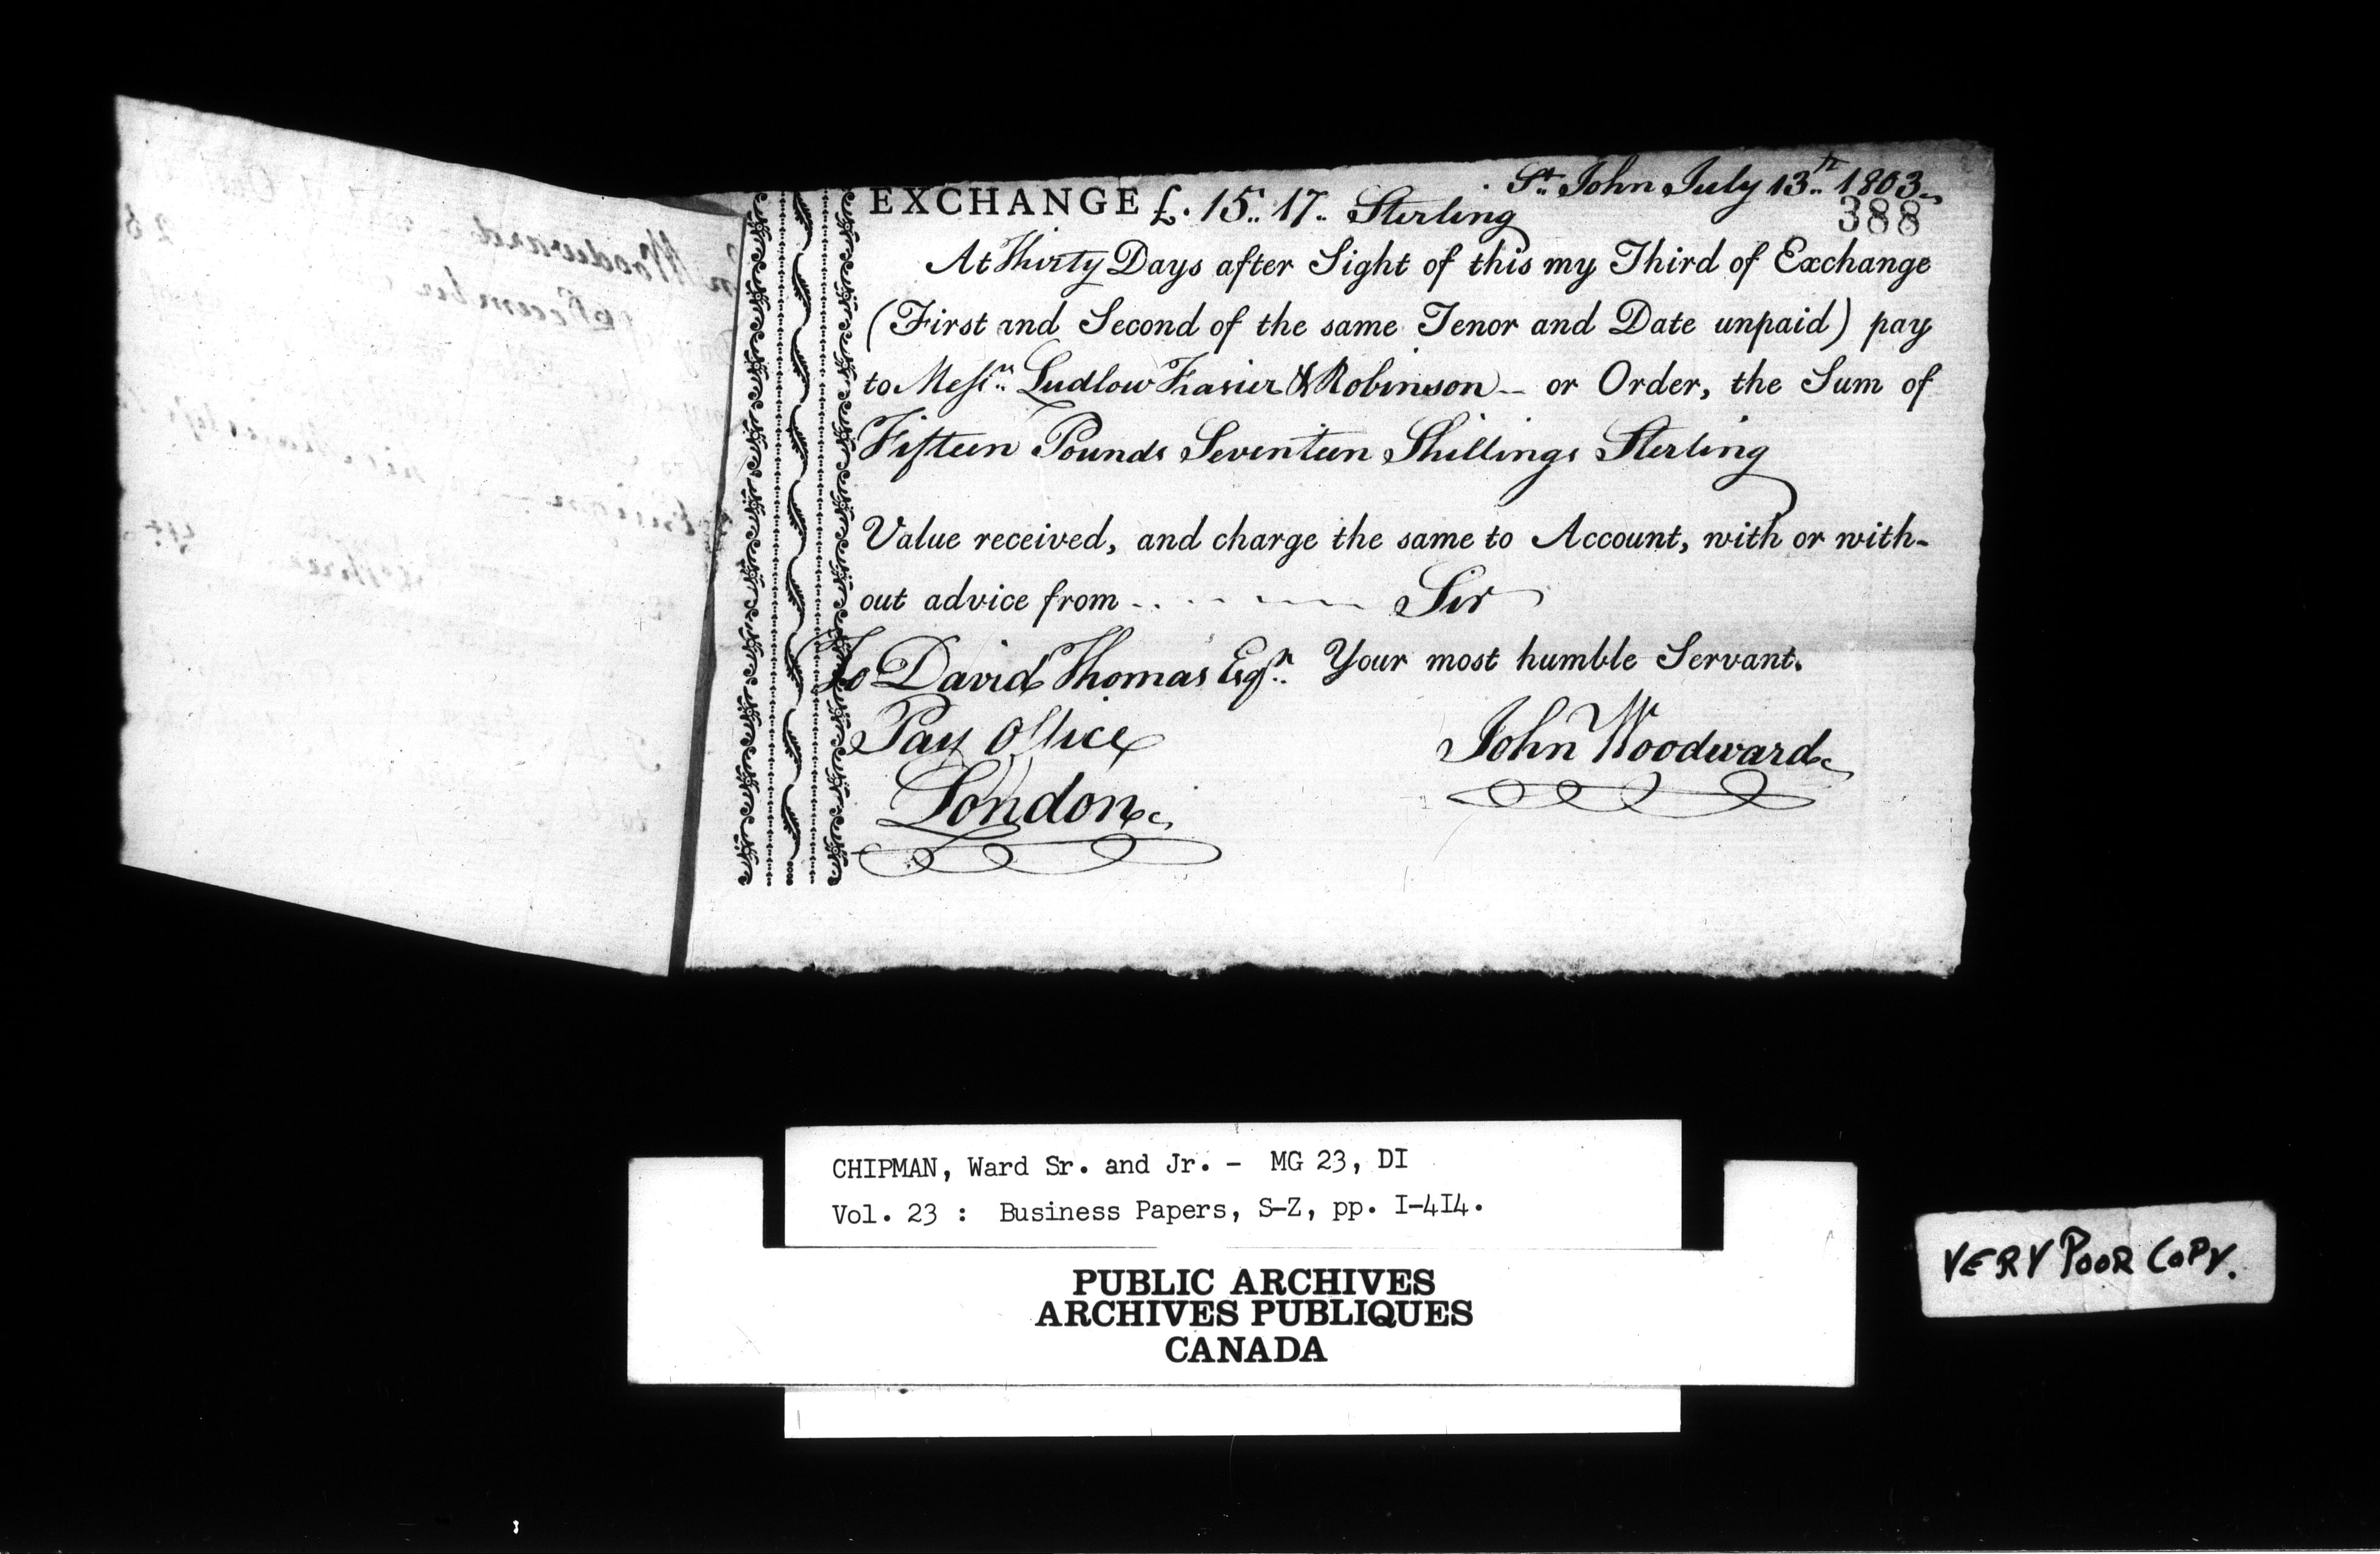 St. John July 13th 1803
EXCHANGE £. 15.. 17.. Sterling
388
At Thirty Days after Sight of this my Third of Exchange
(First and Second of the same Tenor and Date unpaid) pay
to Messrs. Ludlow Frasier & Robinson — or Order, the Sum of
Fifteen Pounds Seventeen Shillings Sterling
Value received, and charge the same to Account, with or with-
out advice from - - - - - Sir
To David Thomas Esqr. Your most humble Servant.
Pay Office
John Woodward
London
Woodward
December
CHIPMAN, Ward Sr. and Jr. - MG 23, DI
Vol. 23 : Business Papers, S-Z, pp. I-4I4.
PUBLIC ARCHIVES
ARCHIVES PUBLIQUES
CANADA
VERY POOR COPY.